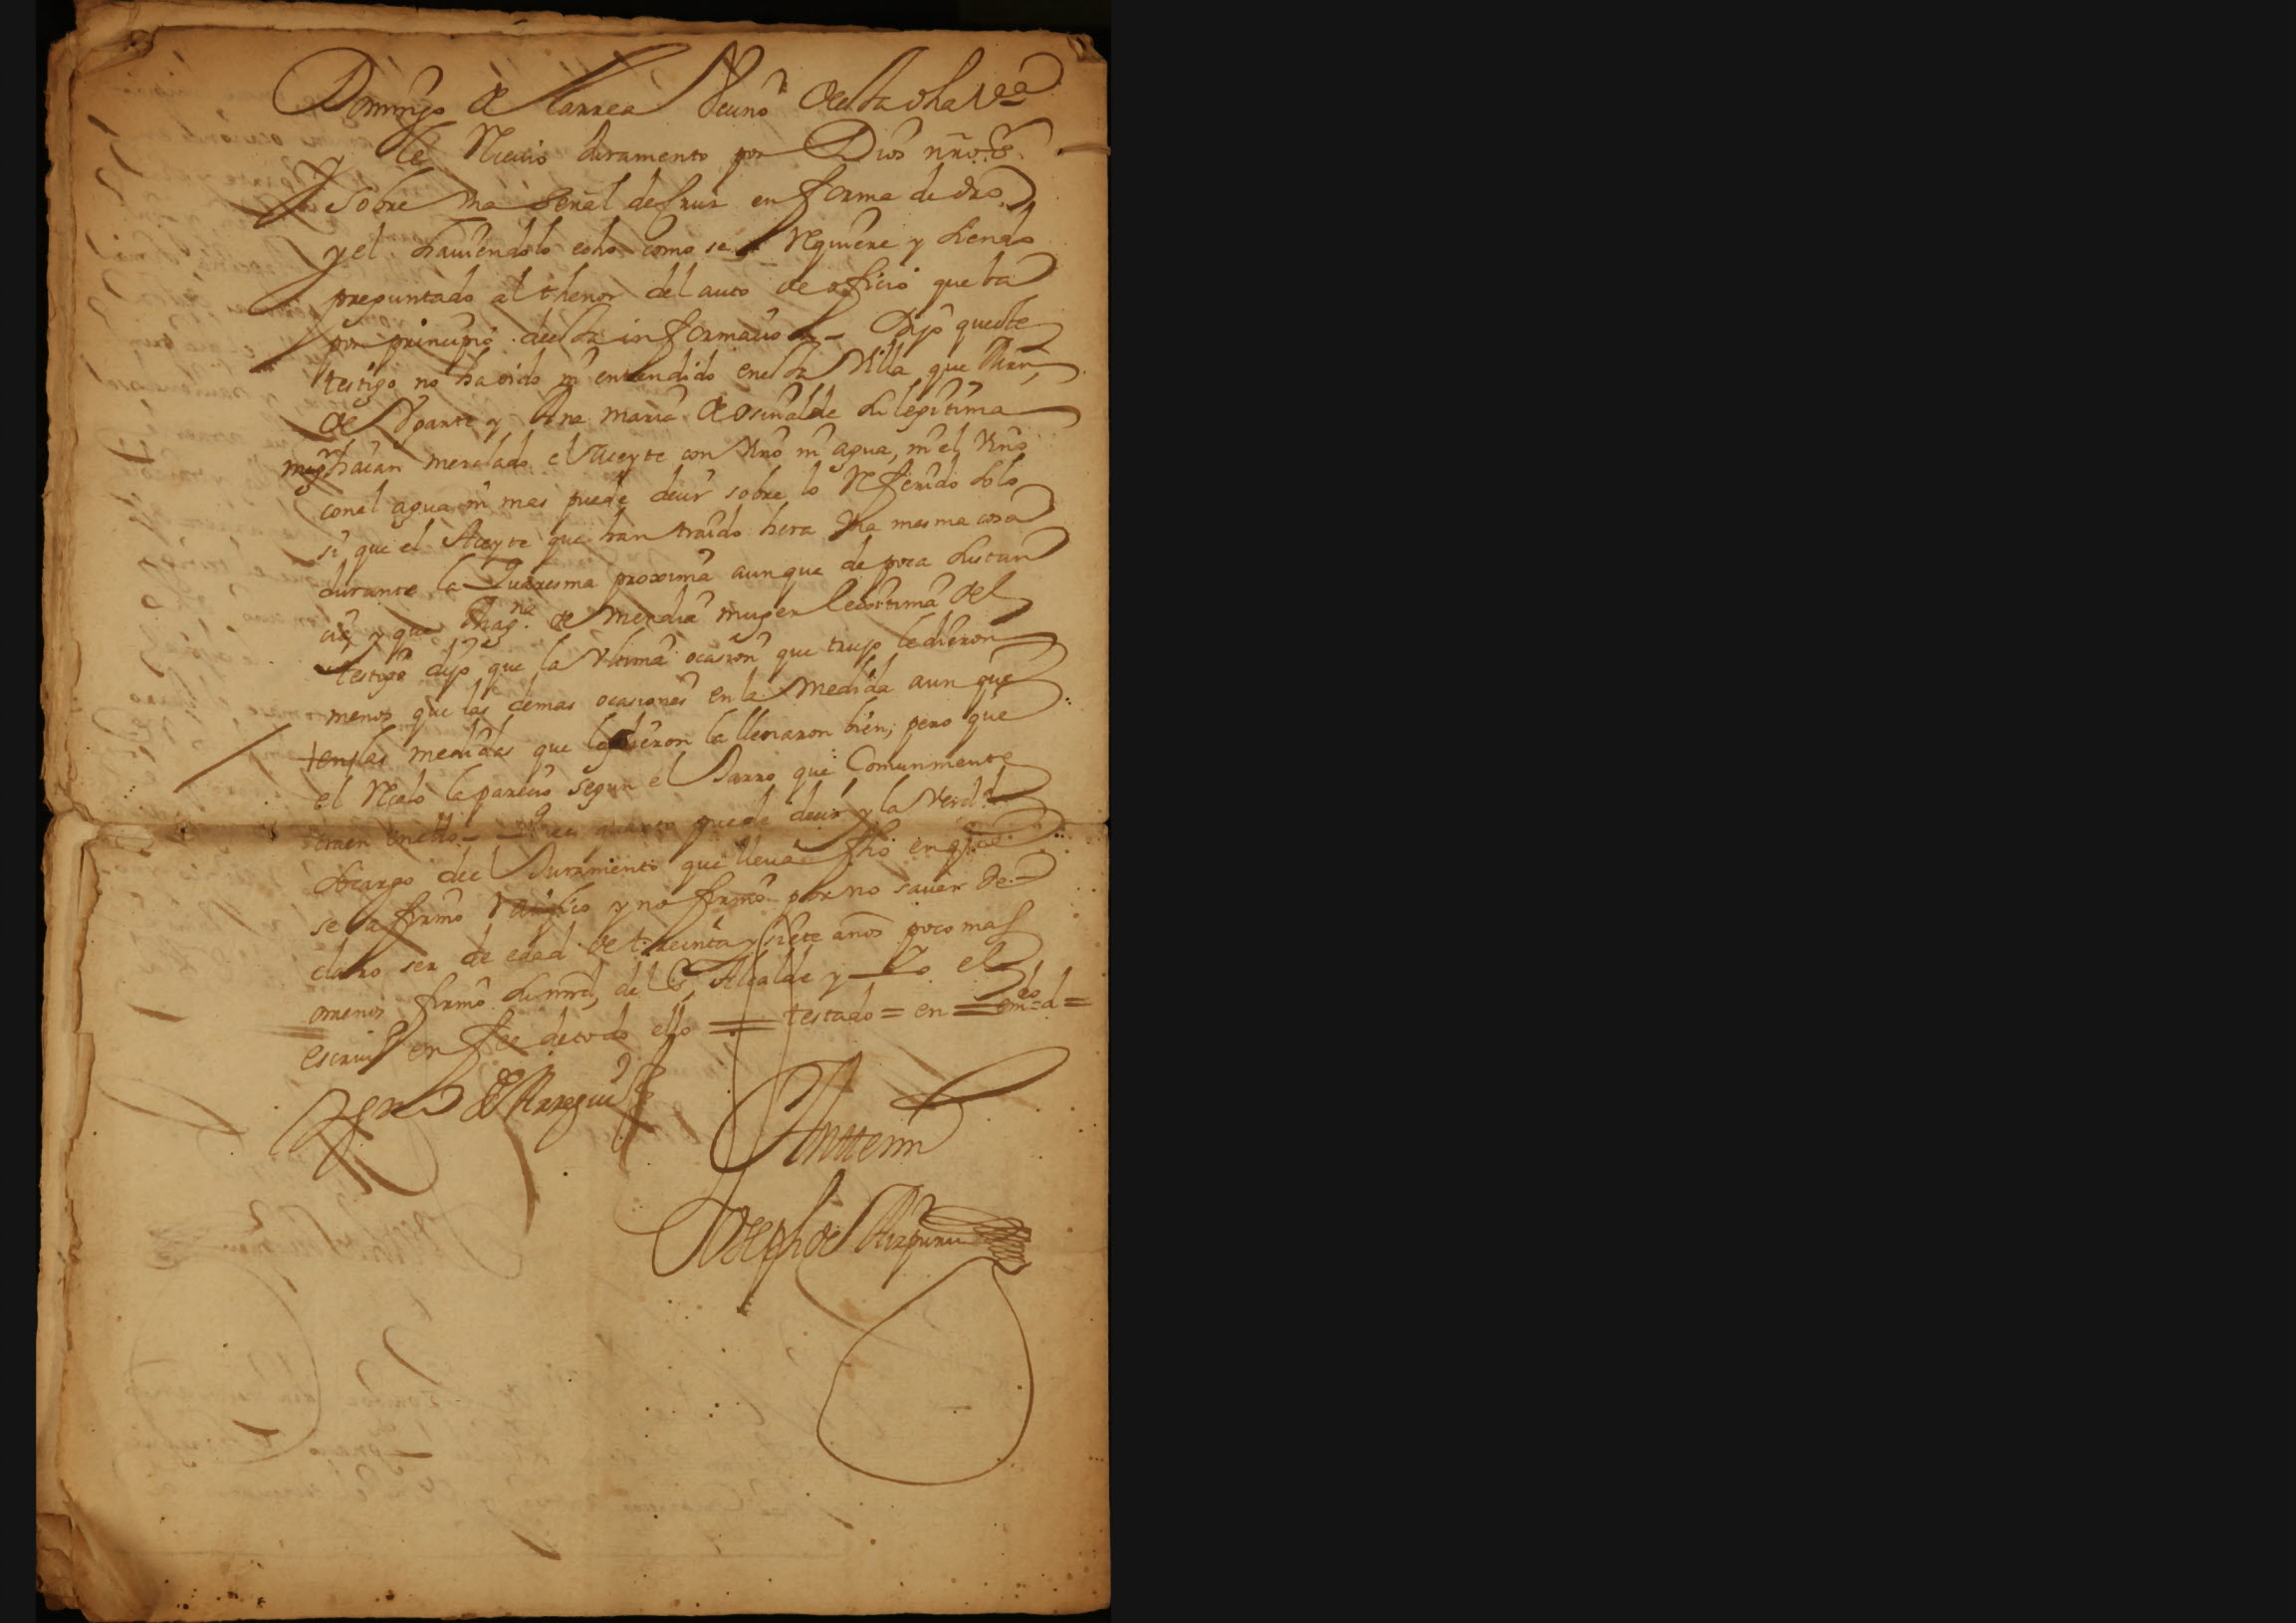 Domingo de Larrea Vecino desta dha Va
le Reciuio Juramento por Dios nro. Sr.
Sobre Vna Señal de Cruz en forma de dro.
y el hauiendolo echo como se Requiere y Siendo
preguntado al thenor del auto de oficio que ba
por principio desta informacion - Dijo queste
testigo no ha oido ni entendido en esta Villa que
de Vgarte y Ana maria de osinalde Su legitima
muger haian mezclado el Aceyte con Vino ni agua, ni el Vino
con el agua ni mas puede decir sobre lo Referido Solo
si que el Aceyte que han traido hera Vna mesma cosa
durante la Quaresma proxima aunque de poca Sustan
cia y que Magna. de Mendia muger lecitima del
testigo dijo que la Vltima ocasion que trujo le dieron
menos que las demas ocasiones en la Medida aun que
en las medidas que le dieron la llenaron bien, pero que
el Recelo le parecio segun el Jarro que Comunmente
traen Vnello - - Que es quanto puede decir y la Verdd.
Socargo del Juramento que lleua fho en que
se afirmo Ratifico y no firmo por no sauer De-
claro ser de edad de treinta y siete años poco mas
omenos firmo Su mrd, del Sr Alcalde y Yo el
escriuo en fee de todo ello = testado = en = emdo = d =
de Arregui
Antemi
Joseph de Aizpuru